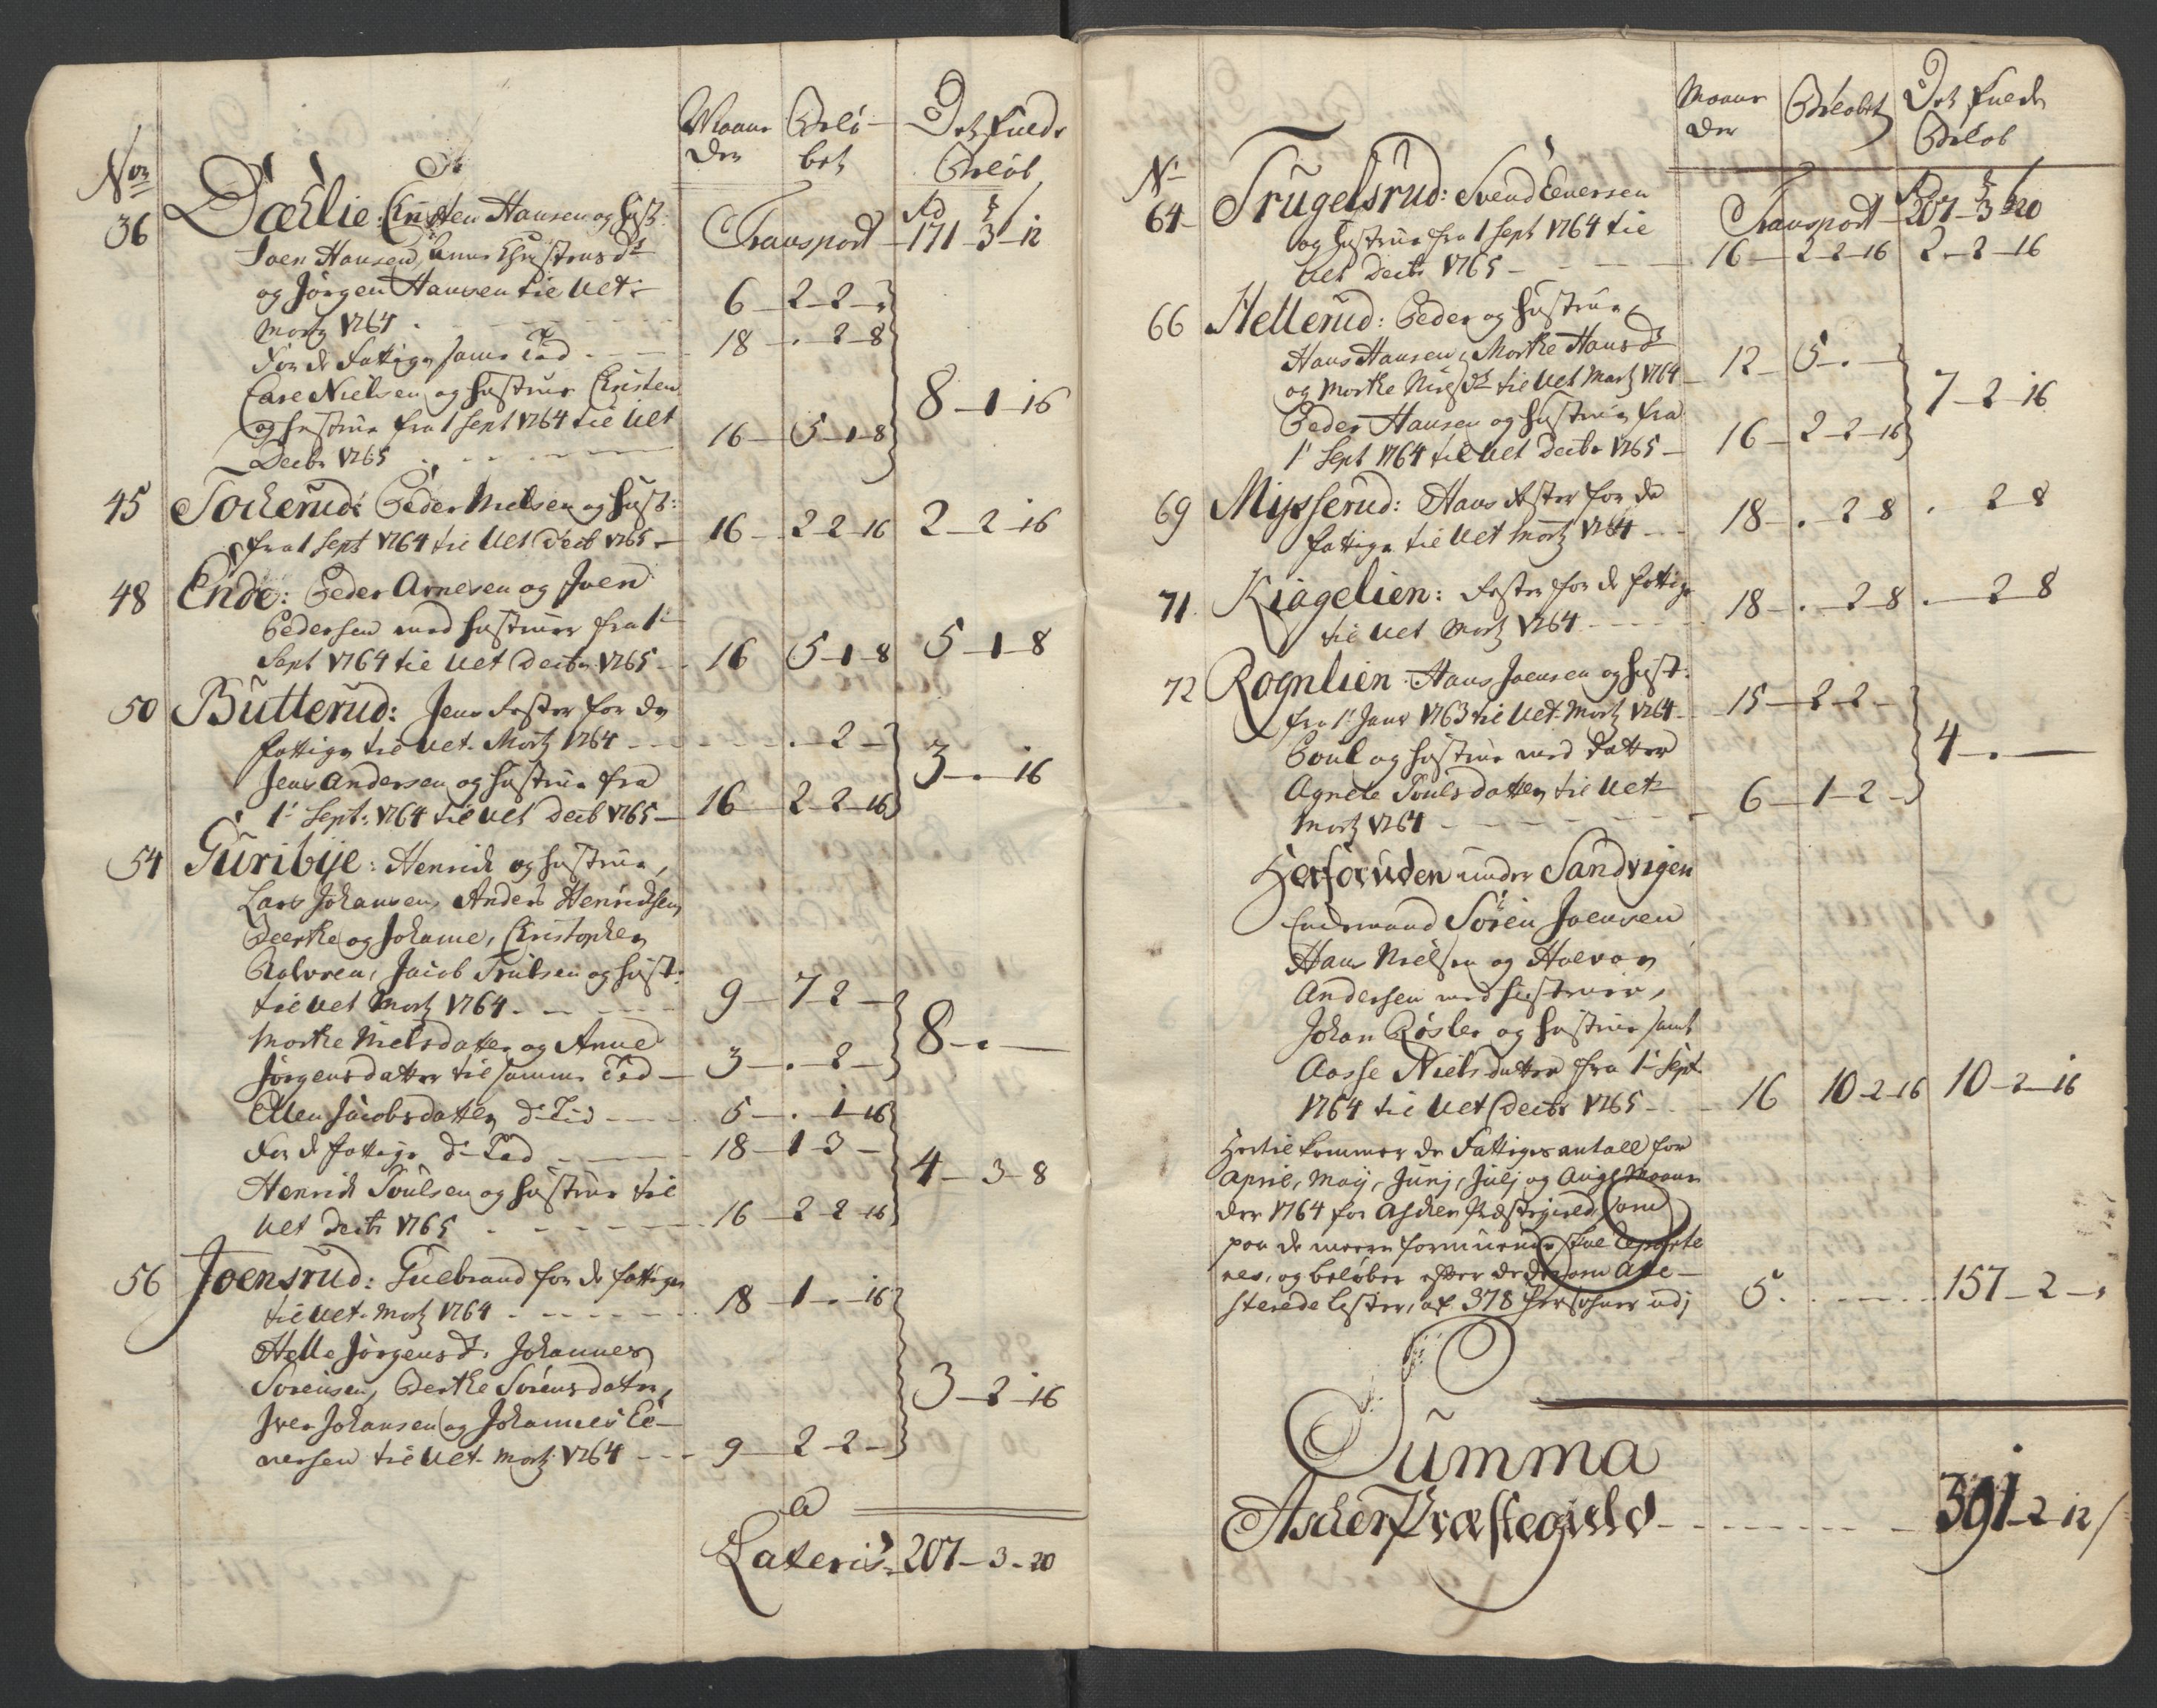 Maane Belö- Det fulde
der bet Beløb
No
36 Dæhlie: Christen Hansen og Hust: Rd ß
Joen Hansen, Anne Christensdr Transport 171-3-12
og Jörgen Hansen til Ult:
Martz 1764 6 2-2-
For de Fattige samme Tid 18 -2-8
Lars Nielsen og Hustrue Christen 8-1-16
og Hustrue fra 1 Sept 1764 til Ult
Decbr 1765 16 5-1-8
45 Tocherud: Peder Nielsen og Hust:
fra 1 Sept 1764 til Ult Decb 1765 16 2-2-16 2-2-16
48 Ende: Peder Arnesen og Joen
Pedersen med Hustruer fra 1te
Sept 1764 til Ult Decbr 1765 16 5-1-8 5-1-8
50 Butterud: Jens Fester for de
fattige til Ult. Martz 1764 -2-
Jens Andersen og Hustrue fra 3-.-16
1te Sept: 1764 til Ult Decb 1765 16 2-2-16
54 Guribye: Henrich og Hustrue,
Lars Johansen, Anders Henrichsen
Beerthe og Johanne, Christopher
Halvoren, Jacob Trulsen og Hust:
til Ult Martz 1764 9 7-2-
Marthe Nielsdatter og Anne 8-.-
Jörgensdatter til samme Tid 3 .-2-
Ellen Jacobsdatter do Tid 5 .-1-16
For de fattige do Tid 18 1-3-
Henrich Poulsen og Hustrue til 4-3-8
Ult Decbr 1765 16 2-2-16
56 Joensrud: Gulbrand for de fattige
til Ult. Martz 1764 18 1-.-16
Helle Jörgensd. Johannes
Sörensen, Berthe Sörensdatter, 3-2-16
Iver Johansen og Johannes Ee-
versen til Ult. Martz 1764 9 2-2-
Lateris 207-3-20
Maane Beløbet Det fulde
der Beløb
No Rd ß
64 Trugelsrud: Svend Eversen Transport 207-3-20
og Hustrue fra 1 Sept 1764 til
Ult Decbr 1765 16 2-2-16 2-2-16
66 Hellerud: Peder og Hustrue
Hans Hansen, Marthe Hansdr
og Marthe Nielsdr til Ult Martz 1764 12 5-.-
Peder Hansen og Hustrue fra 7-2-16
1te Sept 1764 til Ult Decbr 1765 16 2-2-16
69 Mysserud: Hans Fester for de
fattige til Ult Martz 1764 18 .-2-8 . 2-8
71. Kiagelien: Fester for de fattige
til Ult Martz 1764 18 .-2-8 .-2-8
72 Rognlien: Hans Joensen og Hust:
fra 1te Janv 1763 til Ult. Martz 1764 15 2-2-
Poul og Hustrue med Datter 4-.-
Agnete Poulsdatter til Ult
Martz 1764 6 1-2-
Herforuden under Sandvigen
Sören Joensen
Hans Nielsen og Halvor
Andersen med Hustruer,
Johan Rösler og Hustrue samt
Aasse Nielsdatter fra 1te Sept
1764 til Ult Decbr 1765 16 10-2-16 10-2-16
Hertil kommer de Fattiges antall for
April, Maij, Junj, Julj og Augs Maane
der 1764 for Ascher Præstegield, som
paa de meere formuende skal
nes, og beløber efter de derom Atte-
sterede Lister, af 378 Persohner udj 5 157-2-
Summa
Ascher Præstegield 391-2-12/